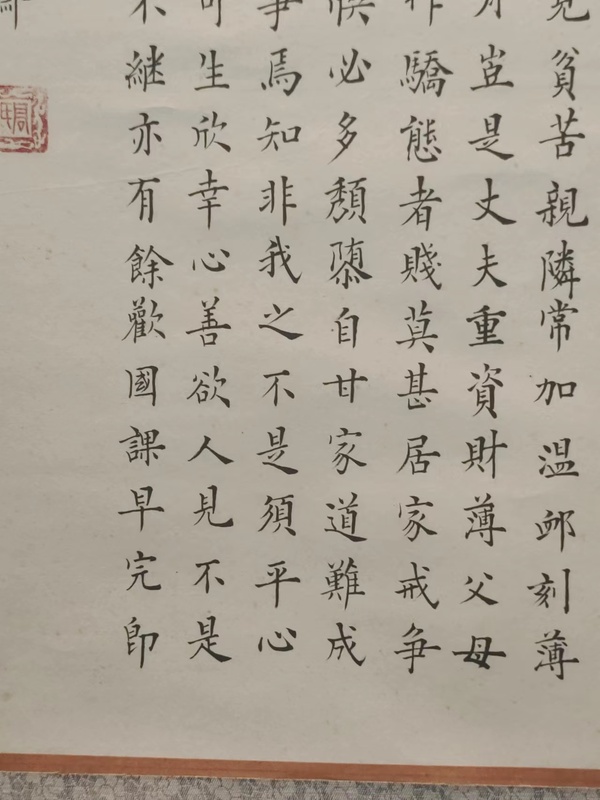 見貧苦親隣常加温卹刻薄
豈是丈夫重資財薄父母
作驕態者賤莫甚居家戒争
必多頹自甘家道難成
争焉知非我之不是須平心
可生欣幸心善欲人見不是
不継亦有餘歡國課早完即